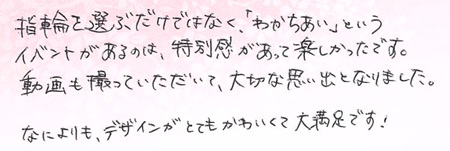 指輪を選ぶだけではなく、「わかちあい」という
イベントがあるのは、特別感があって楽しかったです。
動画も撮っていただいて、大切な思い出となりました。
なによりも、デザインがとてもかわいくて大満足です!